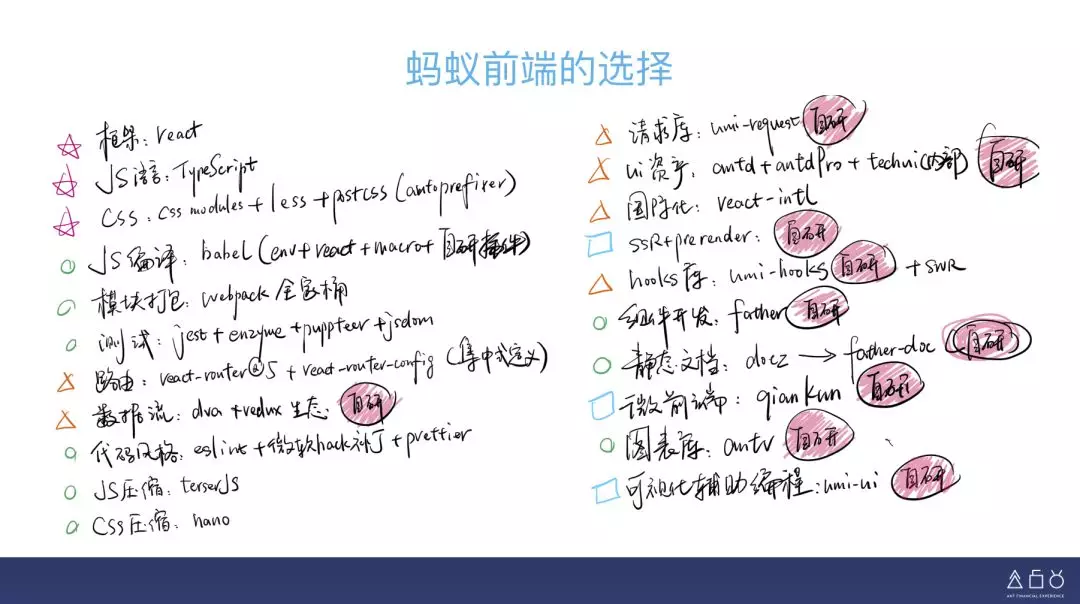 蚂蚁前端的选择
框架: react
JS语言: TypeScript
CSS: css modules + less + postcss (autoprefixer)
JS编译: babel (env + react + macro + 自研插件)
模块打包: webpack 全家桶
测试: jest + enzyme + puppteer + jsdom
路由: react-router@5 + react-router-config (集中式定义)
数据流: dva + redux 生态 自研
代码风格: eslint + 微软hack补丁 + prettier
JS压缩: terserJS
CSS压缩: nano
请求库: umi-request 自研
ui资产: antd + antdPro + techui(内部) 自研
国际化: react-intl
SSR + prerender: 自研
hooks库: umi-hooks 自研 + SWR
组件开发: father 自研
静态文档: docz → father-doc (自研)
微前端: qiankun 自研
图表库: antv 自研
可视化辅助编程: umi-ui 自研
ANT FINANCIAL EXPERIENCE